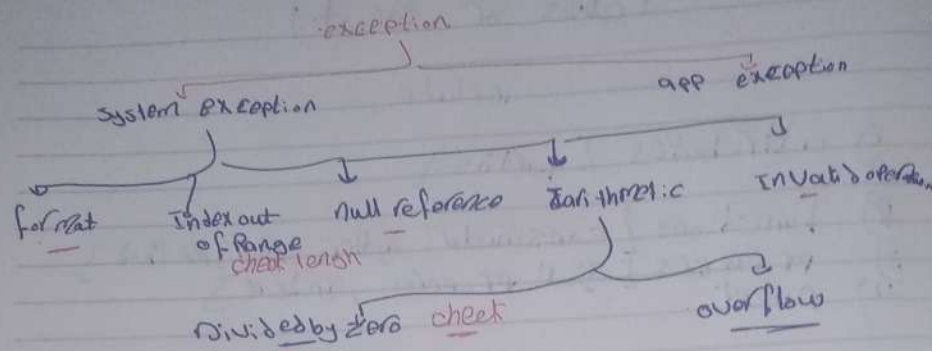 exception
system exception
app exception
format
Index out
of Range
check lengh
null reference
arithmetic
Invalid operation
Divided by zero check
overflow